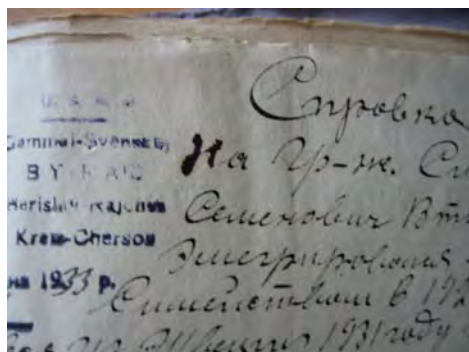 Gammal-Svenskby
BY-RAD
Berislav Rajonus
Krem-Cherson
на 1933 р.
Справка
На Гр-н.
Семенович
Эмегрировался
Симейством в 192
из Швеции 1931 году